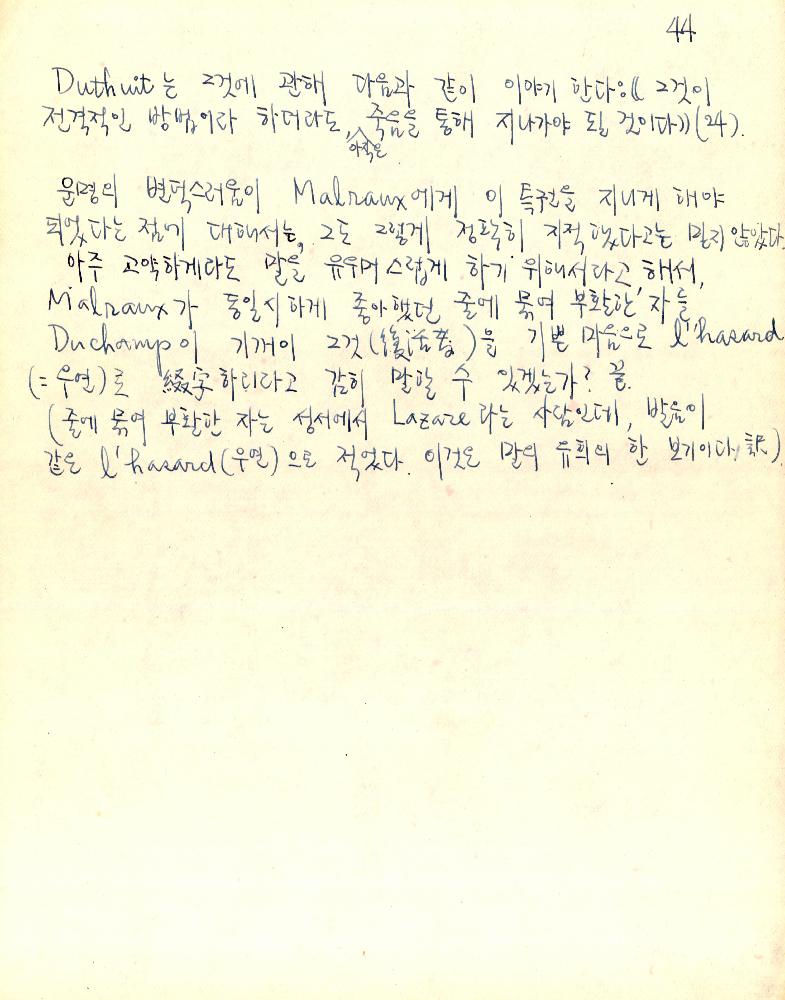 44
Duthuit는 그것에 관해 다음과 같이 이야기 한다:《 그것이
전격적인 방법이라 하더라도, 죽음을 통해 지나가야 될 것이다》(24).
아직은
운명의 변덕스러움이 Malraux에게 이 특권을 지니게 해야
되었다는 점에 대해서는, 그도 그렇게 정확히 지적했다고는 믿지 않았다.
아주 고약하게라도 말을 유우머스럽게 하기 위해서라고 해서,
Malraux가 동일시하게 좋아했던 줄에 묶여 부활한 자를
Duchamp이 기꺼이 그것(復活者)을 기쁜 마음으로 l'hasard
(=우연)로 綴字하리라고 감히 말할 수 있겠는가? 끝.
(줄에 묶여 부활한 자는 성서에서 Lazare라는 사람인데, 발음이
같은 l'hasard(우연)으로 적었다. 이것은 말의 유희의 한 보기이다.訳)